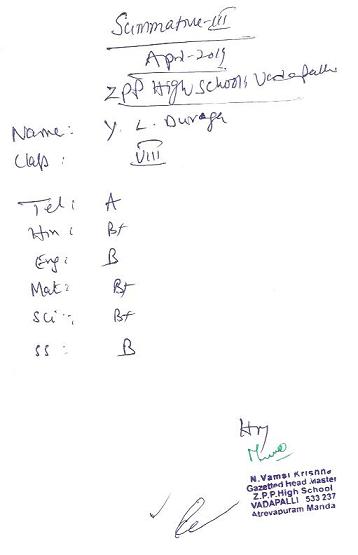 Summative-III
April-2019
ZPP High School, Vadapalli
Name: Y. L. Duraga
Class: VIII
Tel: A
Hin: B+
Eng: B
Mat: B+
Sci: B+
SS: B
N.Vamsi Krishna
Gazetted Head Master
Z.P.P.High School
VADAPALLI 533 237
Atreyapuram Manda